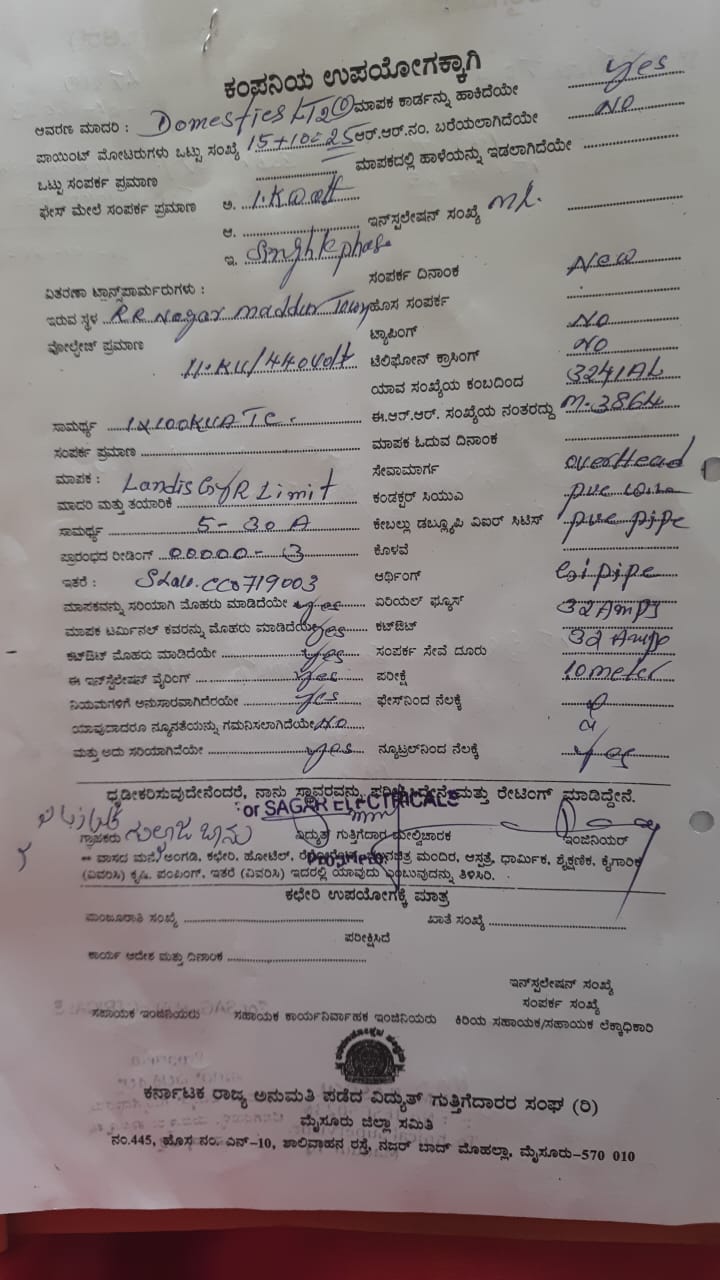 ಕಂಪನಿಯ ಉಪಯೋಗಕ್ಕಾಗಿ
ಆವರಣ ಮಾದರಿ : Domesties LT2 ಮಾಪಕ ಕಾರ್ಡನ್ನು ಹಾಕಿದೆಯೇ yes
ಪಾಯಿಂಟ್ ಮೋಟರುಗಳು ಒಟ್ಟು ಸಂಖ್ಯೆ 15+10=25 ಆರ್.ಆರ್.ನಂ. ಬರೆಯಲಾಗಿದೆಯೇ NO
ಒಟ್ಟು ಸಂಪರ್ಕ ಪ್ರಮಾಣ ಮಾಪಕದಲ್ಲಿ ಹಾಳೆಯನ್ನು ಇಡಲಾಗಿದೆಯೇ
ಫೇಸ್ ಮೇಲೆ ಸಂಪರ್ಕ ಪ್ರಮಾಣ ಅ. 1.Kwatt
ಆ. ಇನ್‌ಸ್ಟಲೇಷನ್ ಸಂಖ್ಯೆ
ಇ. phase
ವಿತರಣಾ ಟ್ರಾನ್ಸ್‌ಫಾರ್ಮರುಗಳು : ಸಂಪರ್ಕ ದಿನಾಂಕ New
ಇರುವ ಸ್ಥಳ RR Nagar maddur Town ಹೊಸ ಸಂಪರ್ಕ
ವೋಲ್ಟೇಜ್ ಪ್ರಮಾಣ 11.KV/440volt ಟ್ಯಾಪಿಂಗ್ NO
ಟೆಲಿಫೋನ್ ಕ್ರಾಸಿಂಗ್ NO
ಯಾವ ಸಂಖ್ಯೆಯ ಕಂಬದಿಂದ 3241AL
ಸಾಮರ್ಥ್ಯ 1X100KVA TC. ಈ.ಆರ್.ಆರ್. ಸಂಖ್ಯೆಯ ನಂತರದ್ದು M.3864
ಸಂಪರ್ಕ ಪ್ರಮಾಣ ಮಾಪಕ ಓದುವ ದಿನಾಂಕ
ಮಾಪಕ : Landis GyR Limit ಸೇವಾಮಾರ್ಗ overHead
ಮಾದರಿ ಮತ್ತು ತಯಾರಿಕೆ ಕಂಡಕ್ಟರ್ ಸಿಯುಎ pvc
ಸಾಮರ್ಥ್ಯ 5-30 A ಕೇಬಲ್ಲು ಡಬ್ಲ್ಯೂಪಿ ವಿಐರ್ ಸಿಟಿಸ್ pvc pipe
ಪ್ರಾರಂಭದ ರೀಡಿಂಗ್ 00000-3 ಕೊಳವೆ
ಇತರೆ : CC0719003 ಆರ್ಥಿಂಗ್ Gi pipe
ಮಾಪಕವನ್ನು ಸರಿಯಾಗಿ ಮೊಹರು ಮಾಡಿದೆಯೇ yes ಏರಿಯಲ್ ಫ್ಯೂಸ್ 32 Amps
ಮಾಪಕ ಟರ್ಮಿನಲ್ ಕವರನ್ನು ಮೊಹರು ಮಾಡಿದೆಯೇ yes ಕಟ್‌ಔಟ್ 32 Amps
ಕಟ್‌ಔಟ್ ಮೊಹರು ಮಾಡಿದೆಯೇ yes ಸಂಪರ್ಕ ಸೇವೆ ದೂರು 10 meter
ಈ ಇನ್‌ಸ್ಟಲೇಷನ್ ವೈರಿಂಗ್ yes ಪರೀಕ್ಷೆ
ನಿಯಮಗಳಿಗೆ ಅನುಸಾರವಾಗಿದೆರೆಯೇ yes ಫೇಸ್‌ನಿಂದ ನೆಲಕ್ಕೆ
ಯಾವುದಾದರೂ ನ್ಯೂನತೆಯನ್ನು ಗಮನಿಸಲಾಗಿದೆಯೇ No
ಮತ್ತು ಅದು ಸರಿಯಾಗಿವೆಯೇ yes ನ್ಯೂಟ್ರಲ್‌ನಿಂದ ನೆಲಕ್ಕೆ yes
ಧೃಢೀಕರಿಸುವುದೇನೆಂದರೆ, ನಾನು ಸ್ಥಾವರವನ್ನು ಪರೀಕ್ಷಿಸಿದ್ದೇನೆ ಮತ್ತು ರೇಟಿಂಗ್ ಮಾಡಿದ್ದೇನೆ.
or SAGAR ELECTRICALS
ಗ್ರಾಹಕರು ಗುಲ್ನಾಜ ಬಾನು ವಿದ್ಯುತ್ ಗುತ್ತಿಗೆದಾರ ಮೇಲ್ವಿಚಾರಕ ಇಂಜಿನಿಯರ್
** ವಾಸದ ಮನೆ, ಅಂಗಡಿ, ಕಛೇರಿ, ಹೋಟೆಲ್, ಮಂದಿರ, ಆಸ್ಪತ್ರೆ, ಧಾರ್ಮಿಕ, ಶೈಕ್ಷಣಿಕ, ಕೈಗಾರಿಕೆ
(ವಿವರಿಸಿ) ಕೃಷಿ. ಪಂಪಿಂಗ್. ಇತರೆ (ವಿವರಿಸಿ) ಇದರಲ್ಲಿ ಯಾವುದು ಎಂಬುವುದನ್ನು ತಿಳಿಸಿರಿ.
ಕಛೇರಿ ಉಪಯೋಗಕ್ಕೆ ಮಾತ್ರ
ಮಂಜೂರಾತಿ ಸಂಖ್ಯೆ ಖಾತೆ ಸಂಖ್ಯೆ
ಪರೀಕ್ಷಿಸಿದೆ
ಕಾರ್ಯ ಆದೇಶ ಮತ್ತು ದಿನಾಂಕ
ಇನ್‌ಸ್ಟಲೇಷನ್ ಸಂಖ್ಯೆ
ಸಂಪರ್ಕ ಸಂಖ್ಯೆ
ಸಹಾಯಕ ಇಂಜಿನಿಯರು ಸಹಾಯಕ ಕಾರ್ಯನಿರ್ವಾಹಕ ಇಂಜಿನಿಯರು ಕಿರಿಯ ಸಹಾಯಕ/ಸಹಾಯಕ ಲೆಕ್ಕಾಧಿಕಾರಿ
ಕರ್ನಾಟಕ ರಾಜ್ಯ ಅನುಮತಿ ಪಡೆದ ವಿದ್ಯುತ್ ಗುತ್ತಿಗೆದಾರರ ಸಂಘ (ರಿ)
ಮೈಸೂರು ಜಿಲ್ಲಾ ಸಮಿತಿ
ನಂ.445, ಹೊಸ ನಂ. ಎನ್-10, ಶಾಲಿವಾಹನ ರಸ್ತೆ, ನಜರ್ ಬಾದ್ ಮೊಹಲ್ಲಾ, ಮೈಸೂರು-570 010